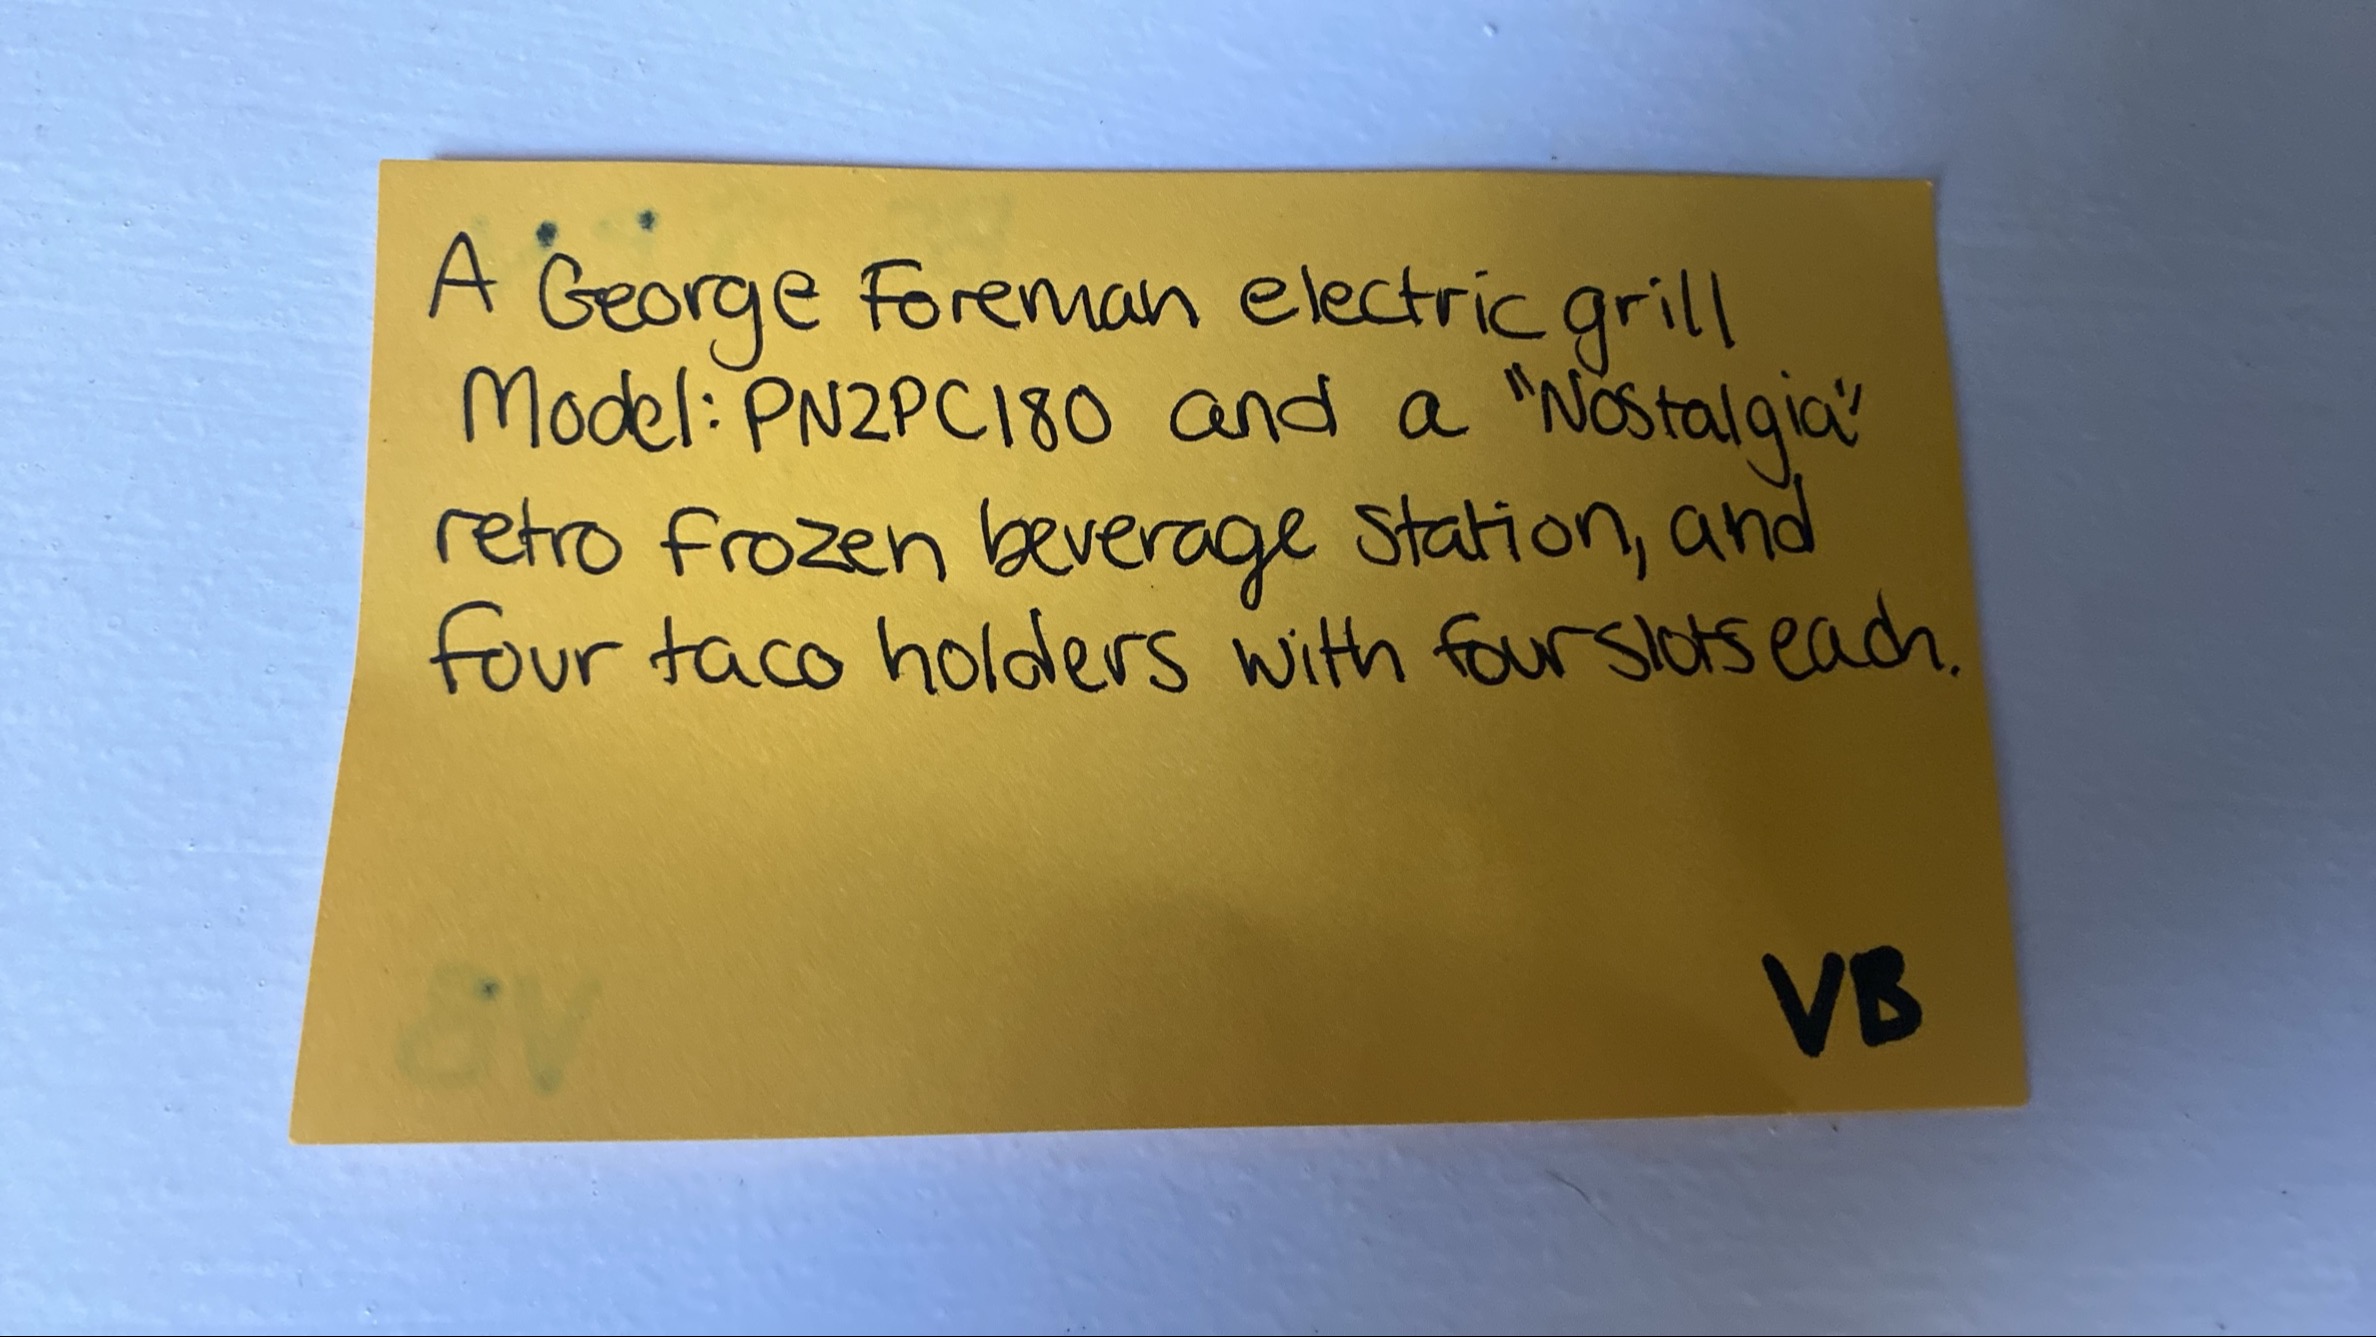 A George Foreman electric grill
Model: PN2PC180 and a "Nostalgia"
retro frozen beverage station, and
four taco holders with four slots each.
VB